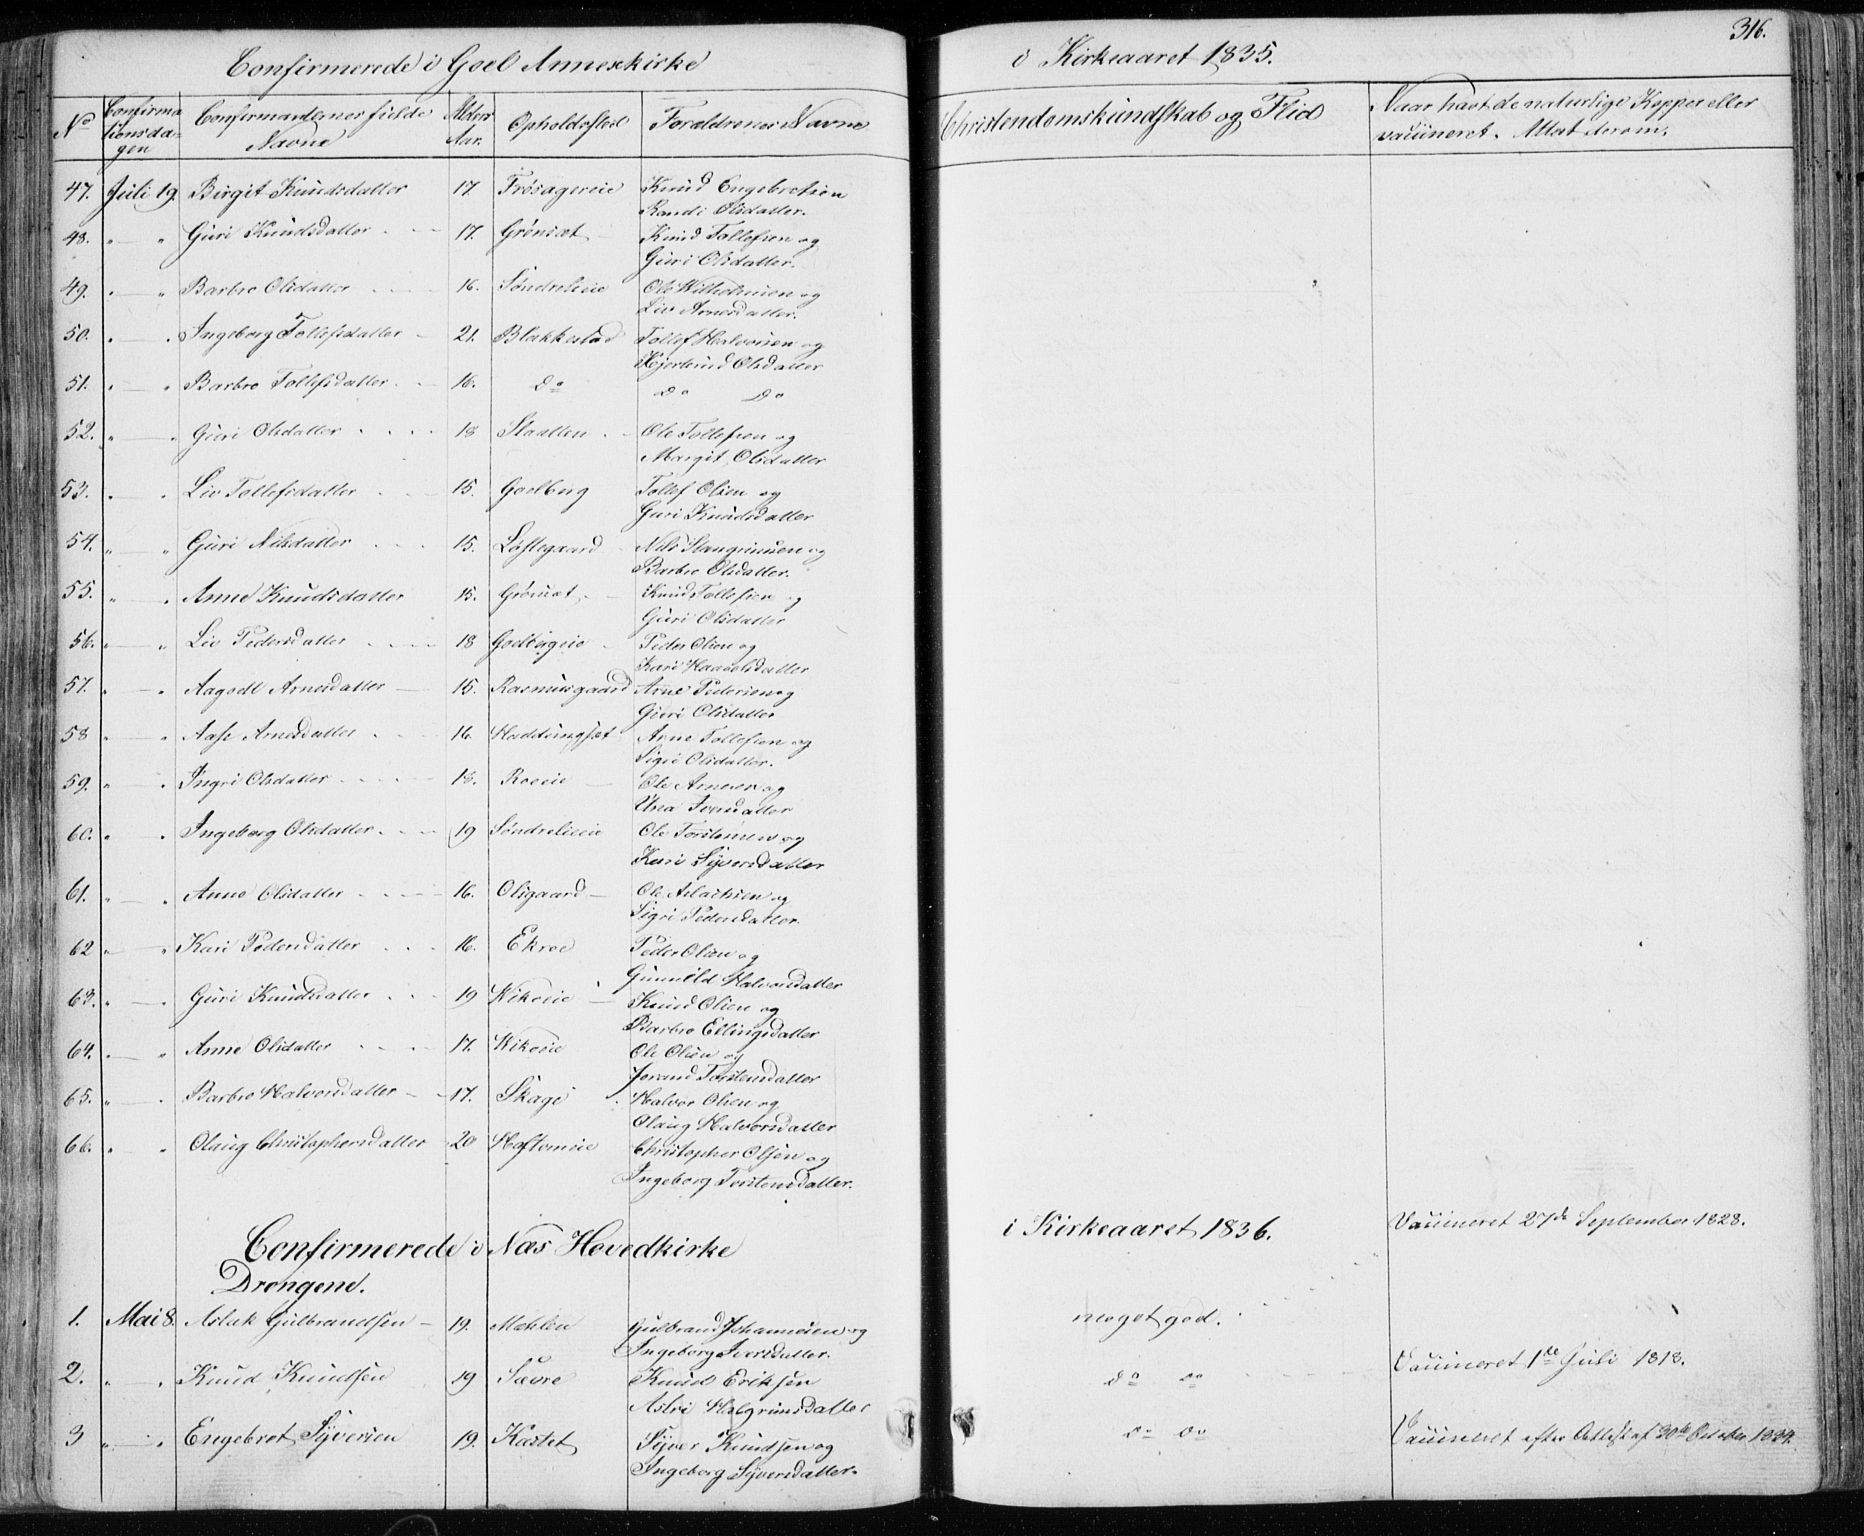 316.
Confirmerede i Goel Annexkirke i Kirkeaaret 1835.
No Confirmationsdagen Confirmandernes fulde Navne Alders Aar. Opholdssted Forældrenes Navne Christendomskundskab og Flid Naar havt de naturlige Kopper eller
vaccineret. Attest derom.
47. Juli 19. Birgit Knudsdatter 17. Frösagereie Knud Engebretsen
Randi Olsdatter.
48. " " Guri Knudsdatter 17. Grönsæt Knud Tollefsen og
Guri Olsdatter.
49. " " Barbro Olsdatter 16. Söndrelieie Ole Wilhelmsen og
Liv Arnesdatter.
50. " " Ingeborg Tollefsdatter 21. Blakkestad Tollef Halvorsen og
Kjerstind Olsdatter
51. " " Barbro Tollefsdatter 16. do do do
52. " " Guri Olsdatter 18 Slaatten Ole Tollefsen og
Margit Olsdatter
53. " " Liv Tollefsdatter 15. Goelberg Tollef Olsen og
Guri Knudsdatter
54. " " Guri Nilsdatter 15. Löstegaard Nils Slangrimsen og
Barbro Olsdatter.
55. " " Anne Knudsdatter 15. Grönsæt Knud Tollefsen og
Guri Olsdatter
56. " " Liv Pedersdatter 18 Goelbergeie Peder Olsen og
Kari Haavelsdatter
57. " " Aagodt Arnesdatter 15. Rasmusgaard Arne Pedersen og
Guri Olsdatter
58 " " Aase Arnesdatter 16. Haddingsæt Arne Tollefsen og
Sigri Olsdatter.
59. " " Ingri Olsdatter 18. Roeie Ole Arnesen og
Una Iversdatter
60. " " Ingeborg Olsdatter 19 Söndrelieeie Ole Torstensen og
Kari Syversdatter
61. " " Anne Olsdatter 16. Olsgaard Ole Aslacksen og
Sigri Pedersdatter
62 " " Kari Pedersdatter 16. Ekroe Peder Olsen og
Gunnild Halvorsdatter
63. " " Guri Knudsdatter 19 Wikoeie Knud Olsen og
Barbro Ellingsdatter
64. " " Anne Olsdatter 17. Wikoeie Ole Olsen og
Jorand Torstensdatter
65. " " Barbro Halvorsdatter 17. Skaga Halvor Olsen og
Olaug Halvorsdatter
66. " " Olaug Christophersdatter 20 Haftorneie Christopher Olsen og
Ingeborg Torstensdatter.
Confirmerede i Næs Hovedkirke i Kirkeaaret 1836.
Drengene.
1. Mai 8. Aslak Gulbrandsen 19. Mehlen Gulbrand Johannesen og meget god. Vaccineret 27de September 1828.
Ingeborg Iversdatter.
2. " " Knud Knudsen 19 Sævre Knud Eriksen do do Vaccineret 1te Juli 1818.
Astri Halgrimsdatter
3 " " Engebret Syversen 19. Kastet Syver Knudsen og do do Vaccineret efter Attest af 20de October 1834.
Ingeborg Syversdatter.